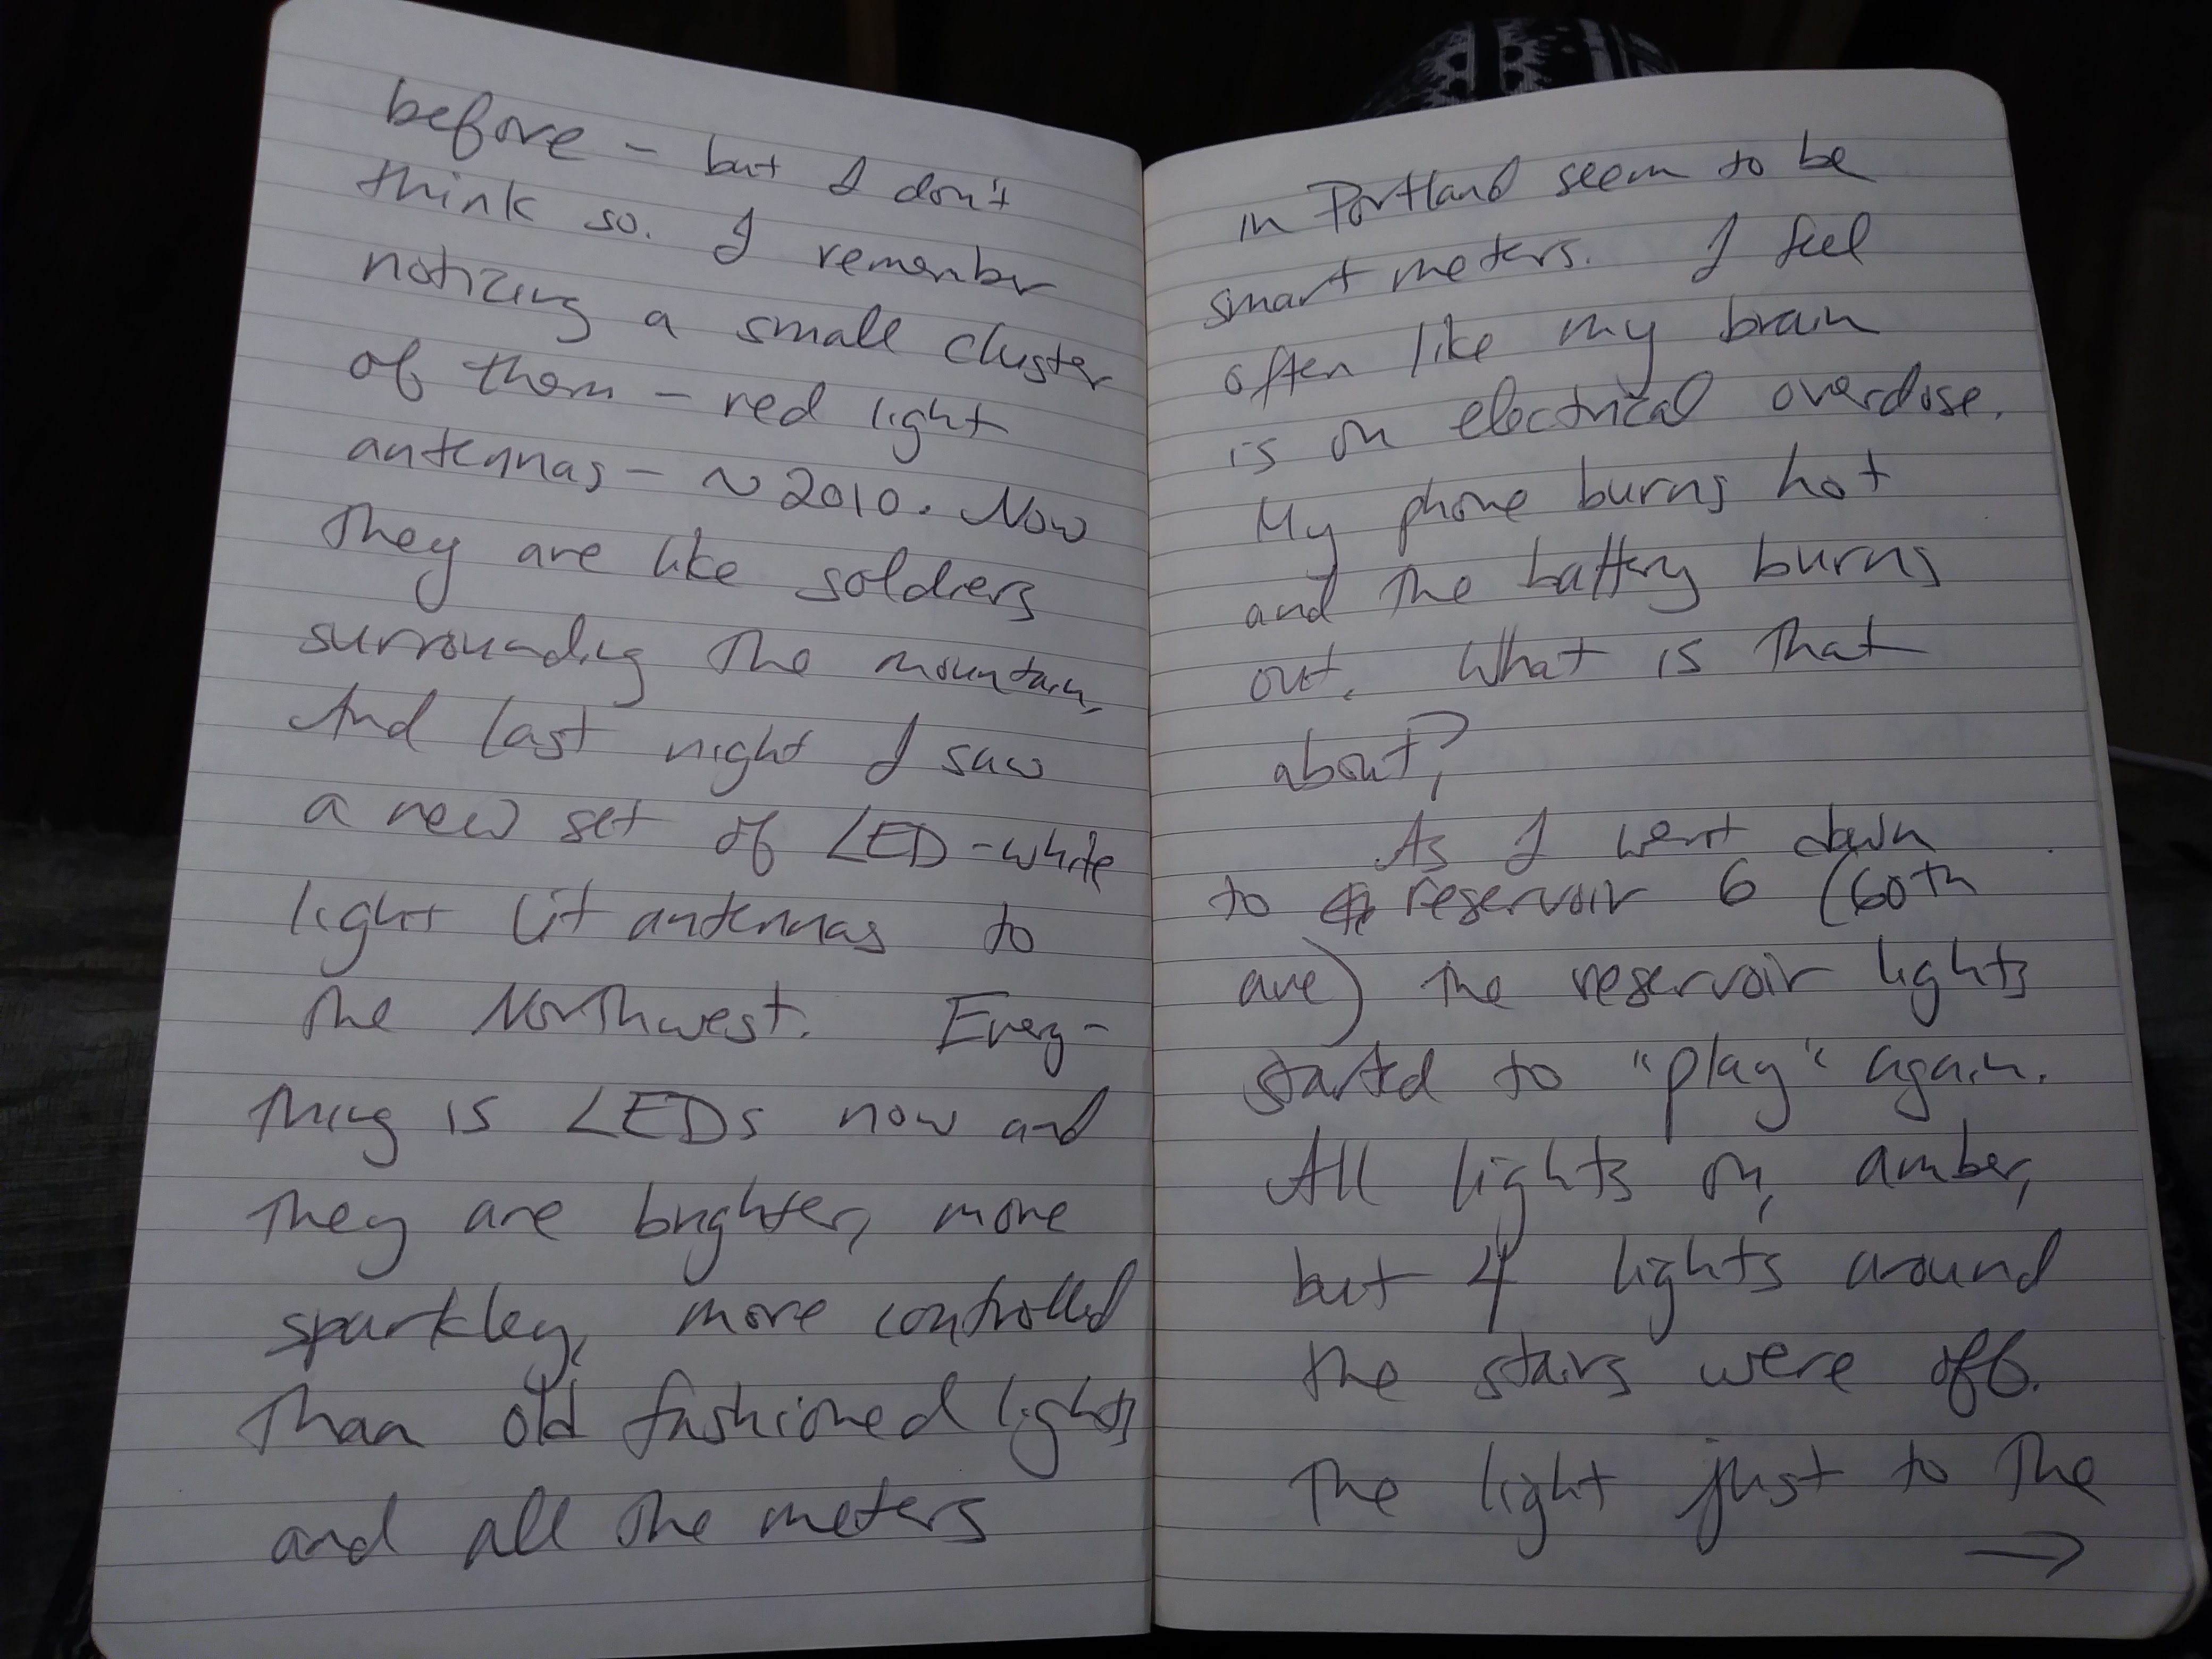 before – but I don't
think so. I remember
noticing a small cluster
of them – red light
antennas – ~2010. Now
They are like soldiers
surrounding The mountain,
And last night I saw
a new set of LED-white
light lit antennas to
The Northwest. Every-
Thing is LEDs now and
They are brighter, more
sparkley, more controlled
Than old fashioned lights
and all The meters
in Portland seem to be
smart meters. I feel
often like my brain
is on electrical overdose.
My phone burns hot
and The battery burns
out. What is That
about?
As I went down
to reservoir 6 (60th
ave) The reservoir lights
started to "play" again.
All lights on, amber,
but 4 lights around
The stairs were off.
The light just to The
→